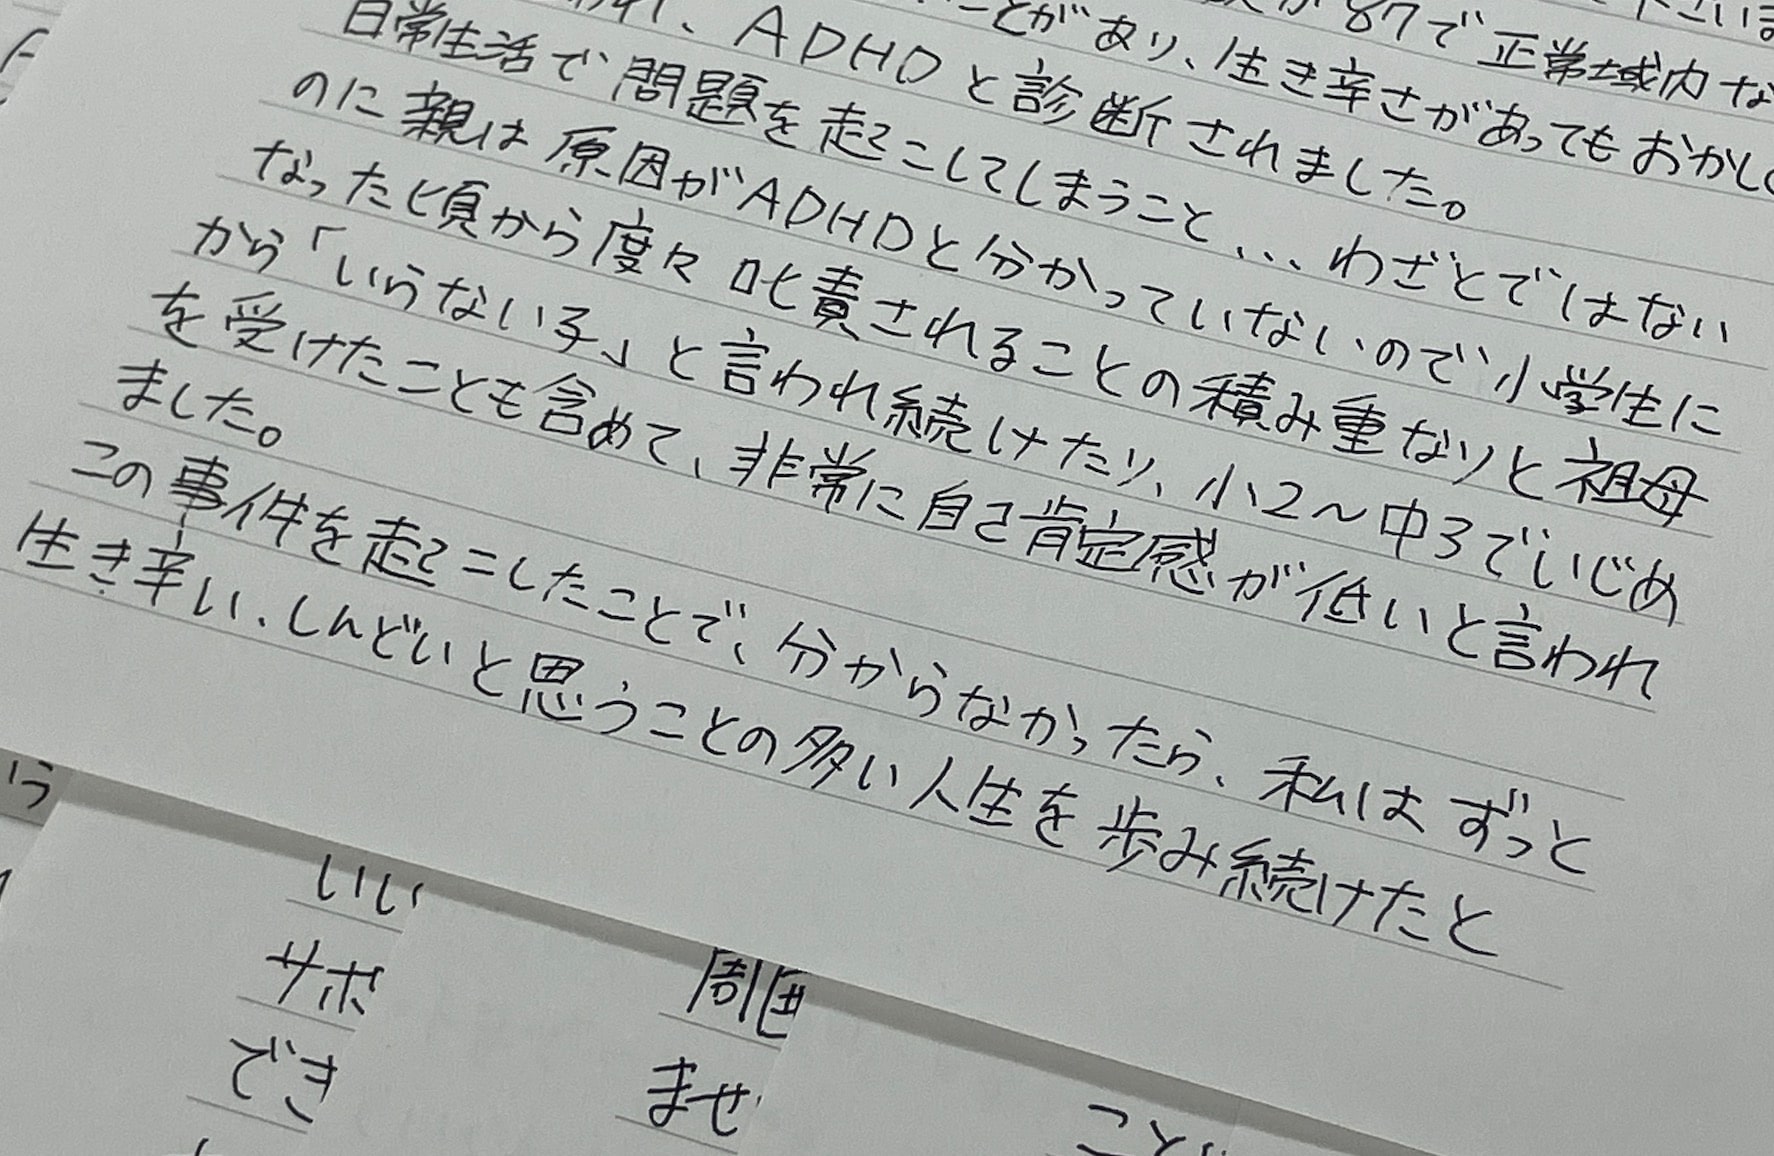 下さいま
が87で正常域内な
ことがあり、生き辛さがあってもおかしく
われ、ADHDと診断されました。
日常生活で問題を起こしてしまうこと...わざとではない
のに親は原因がADHDと分かっていないので小学生に
なった頃から度々叱責されることの積み重なりと祖母
から「いらない子」と言われ続けたり、小2〜中3でいじめ
を受けたことも含めて、非常に自己肯定感が低いと言われ
ました。
この事件を起こしたことで、分からなかったら、私はずっと
生き辛い、しんどいと思うことの多い人生を歩み続けたと
いい
サポ
でき
周囲
ませ
こと